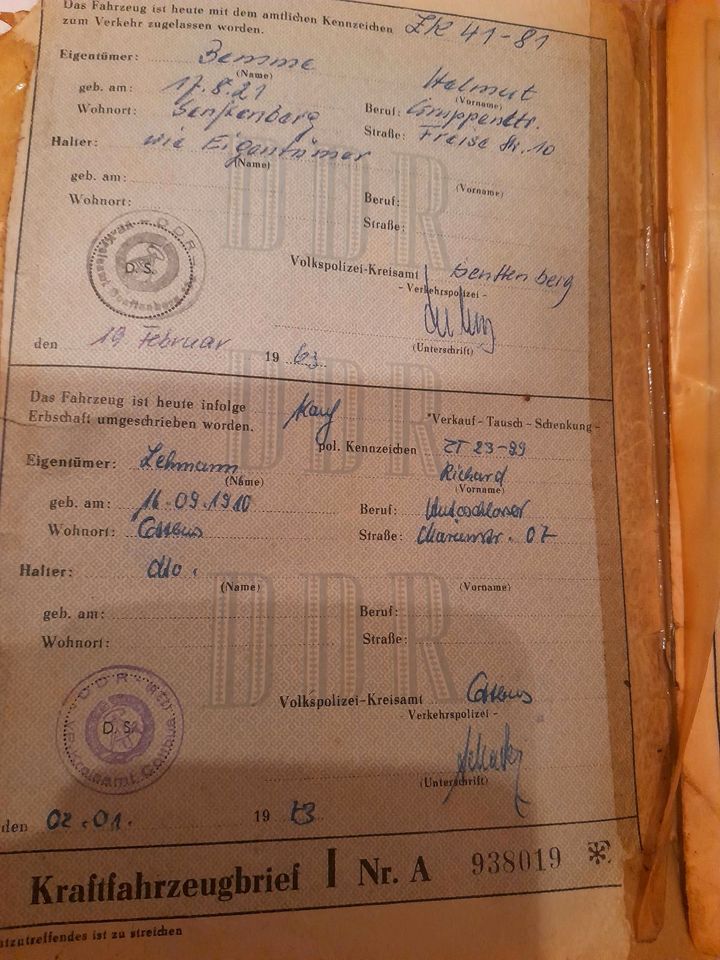 Das Fahrzeug ist heute mit dem amtlichen Kennzeichen ZK 41-81
zum Verkehr zugelassen worden.
Eigentümer: Helmut
(Name) (Vorname)
geb. am: 17.8.21 Beruf:
Wohnort: Senftenberg Straße: 10
Halter: wie Eigentümer
(Name) (Vorname)
geb. am: Beruf:
Wohnort: Straße:
D. S.
Volkspolizei-Kreisamt Senftenberg
- Verkehrspolizei -
(Unterschrift)
den 19 Februar 19 63
Das Fahrzeug ist heute infolge Kauf *Verkauf - Tausch - Schenkung -
Erbschaft umgeschrieben worden. pol. Kennzeichen ZT 23-99
Eigentümer: Lehmann Richard
(Name) (Vorname)
geb. am: 16.09.1910 Beruf: Autoschlosser
Wohnort: Cottbus Straße: 07
Halter: dto.
(Name) (Vorname)
geb. am: Beruf:
Wohnort: Straße:
DDR
DDR
DDR
D. S.
Volkspolizei-Kreisamt Cottbus
- Verkehrspolizei -
(Unterschrift)
den 02.01. 19 73
Kraftfahrzeugbrief I Nr. A 938019 *
ist zu streichen